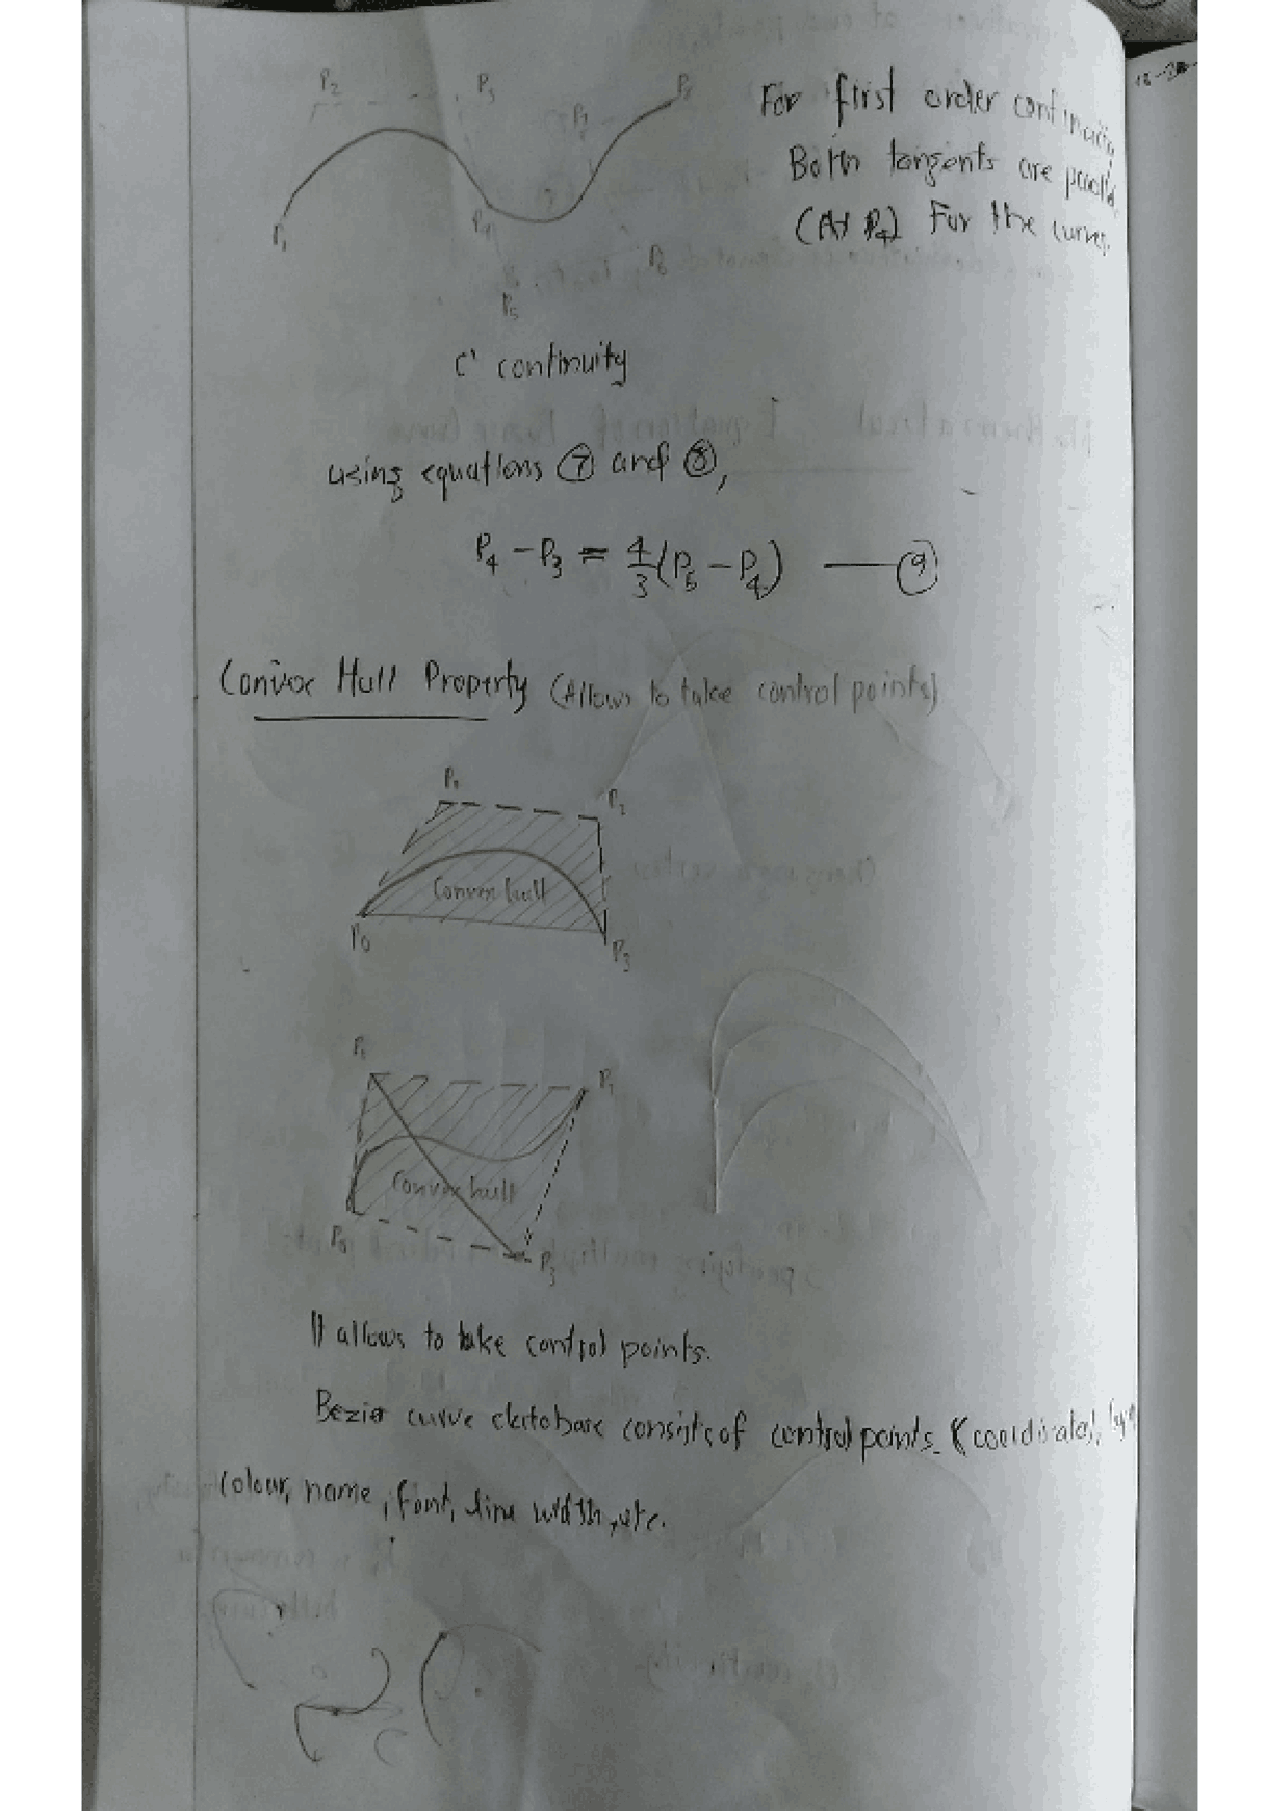 P2 P3 P7 P8
For first order continuity
Both tangents are parallel
(At P4) For the curves.
P1 P4
P6
P5
C' continuity
using equations ⑦ and ⑧,
P4 - P3 = 4/3 (P5 - P4) — ⑨
Convex Hull Property (Allows to take control points)
P1 P2
Convex hull
P0 P3
P1
Convex hull
P0 P3
It allows to take control points.
Bezier curve database consists of control points (coordinates),
colour, name, font, line width, etc.